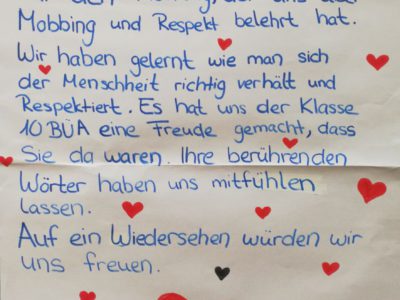 Mobbing und Respekt belehrt hat.
Wir haben gelernt wie man sich
der Menschheit richtig verhält und
Respektiert. Es hat uns der Klasse
10 BÜA eine Freude gemacht, dass
Sie da waren. Ihre berührenden
Wörter haben uns mitfühlen
lassen.
Auf ein Wiedersehen würden wir
uns freuen.